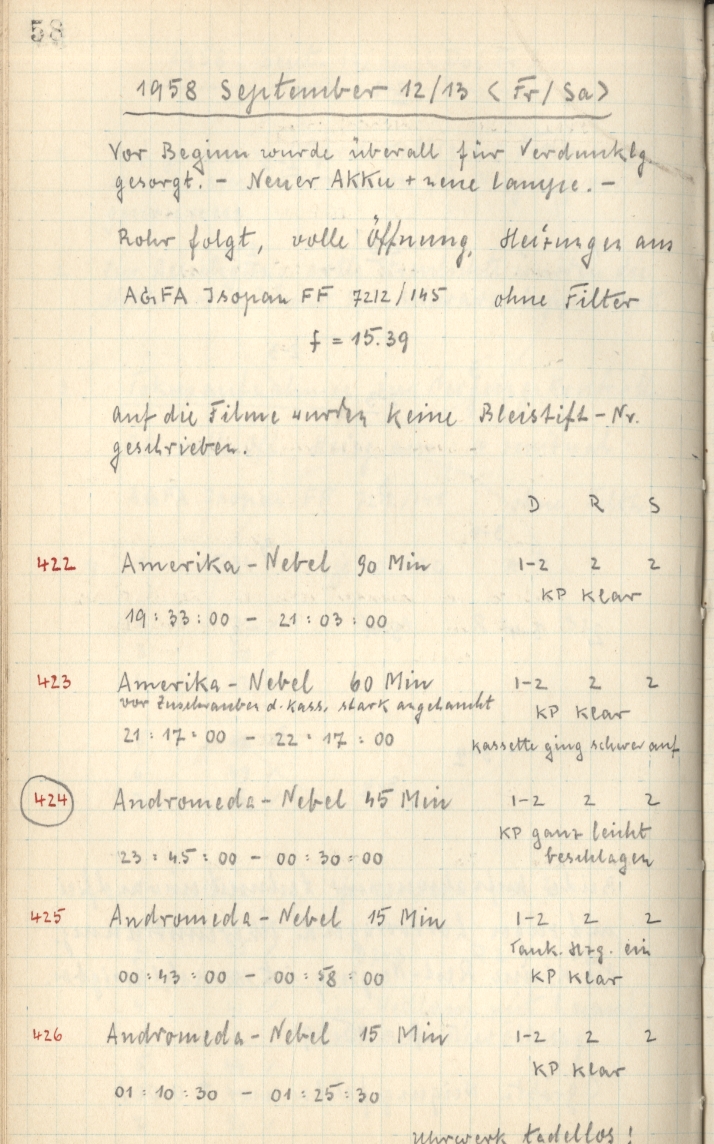 58
1958 September 12/13 < Fr/Sa >
Vor Beginn wurde überall für Verdunklg
gesorgt. - Neuer Akku + neue Lampe. -
Rohr folgt, volle Öffnung, Heizungen aus
AGFA Isopan FF 7212/145 ohne Filter
f = 15.39
auf die Filme wurden keine Bleistift-Nr.
geschrieben.
D R S
422 Amerika-Nebel 90 Min 1-2 2 2
KP klar
19:33:00 - 21:03:00
423 Amerika-Nebel 60 Min 1-2 2 2
vor Zuschrauben d. Kass. stark angehaucht
KP klar
21:17:00 - 22:17:00
Kassette ging schwer auf
424 Andromeda-Nebel 45 Min 1-2 2 2
KP ganz leicht
beschlagen
23:45:00 - 00:30:00
425 Andromeda-Nebel 15 Min 1-2 2 2
Tauk. Hzg. ein
00:43:00 - 00:58:00
KP klar
426 Andromeda-Nebel 15 Min 1-2 2 2
KP klar
01:10:30 - 01:25:30
Uhrwerk tadellos!